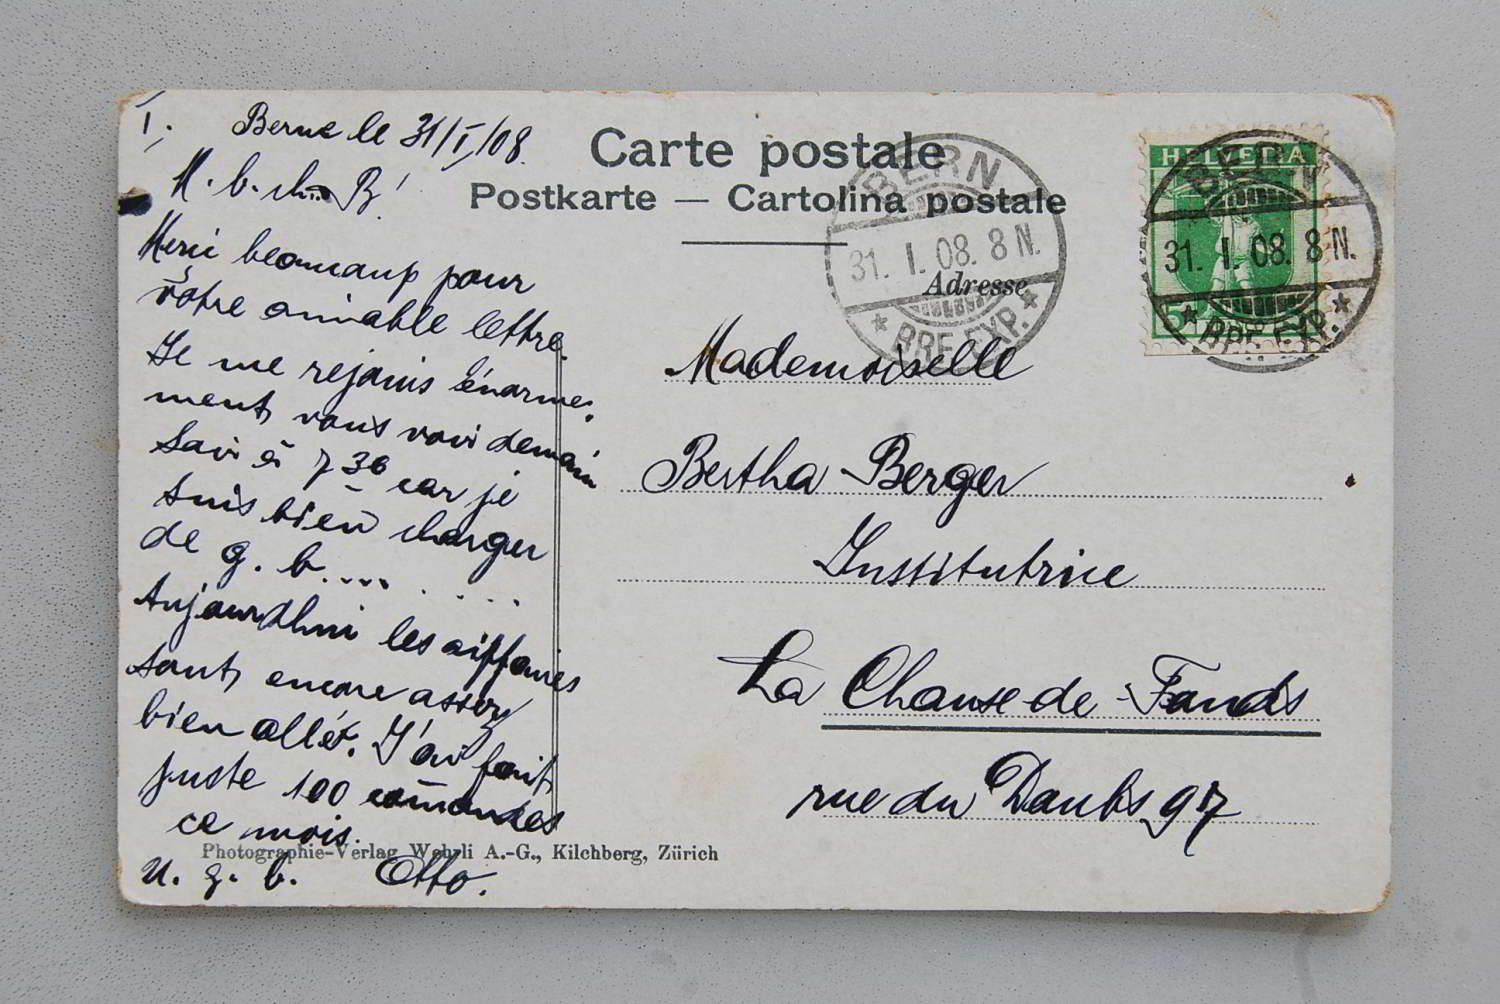 I. Berne le 31/I/08.
M. b. ch. B!
Merci beaucoup pour
vôtre aimable lettre.
Je me rejouis énorme-
ment, vous voir demain
soir à 7 30 car je
suis bien charger
de g. b. ....
Aujourdhui les affaires
sont encore assez
bien allét. J'ai fait
juste 100 comandes
ce mois.
u. g. b. Otto.
Carte postale
Postkarte — Cartolina postale
Adresse
BERN
31. I. 08. 8 N.
BRF. EXP.
HELVETIA
5
BERN
31. I. 08. 8 N.
BRF. EXP.
Mademoiselle
Bertha Berger
Institutrice
La Chause de Fonds
rue du Doubs 97
Photographie-Verlag Wehrli A.-G., Kilchberg, Zürich